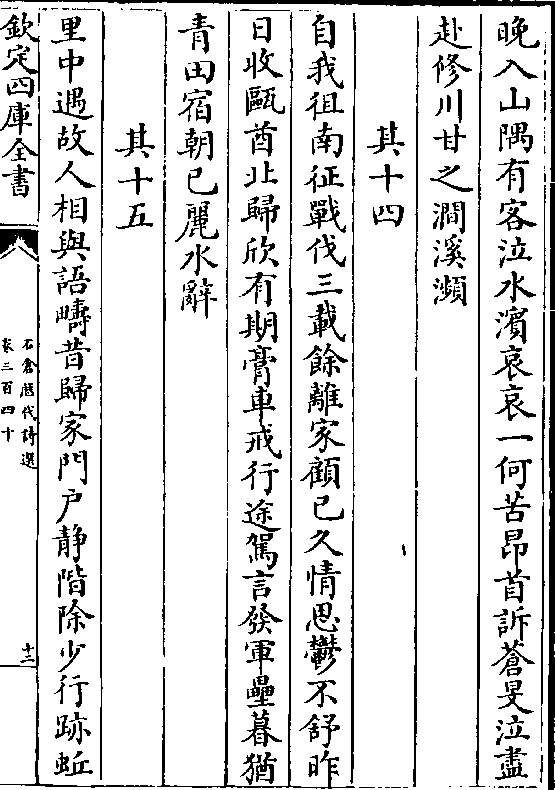 晚入山隅有客泣水濱哀哀一何苦昂首訴蒼旻泣盡
赴修川甘之澗溪瀕
其十四
自我徂南征戰伐三載餘離家顧已久情思鬱不舒昨
日收甌酋北歸欣有期膏車戒行途駕言發軍壘暮猶
青田宿朝已麗水辭
其十五
里中遇故人相與語疇昔歸家門户靜階除少行跡蚯
欽定四庫全書
石倉歷代詩選
卷三百四十
十二